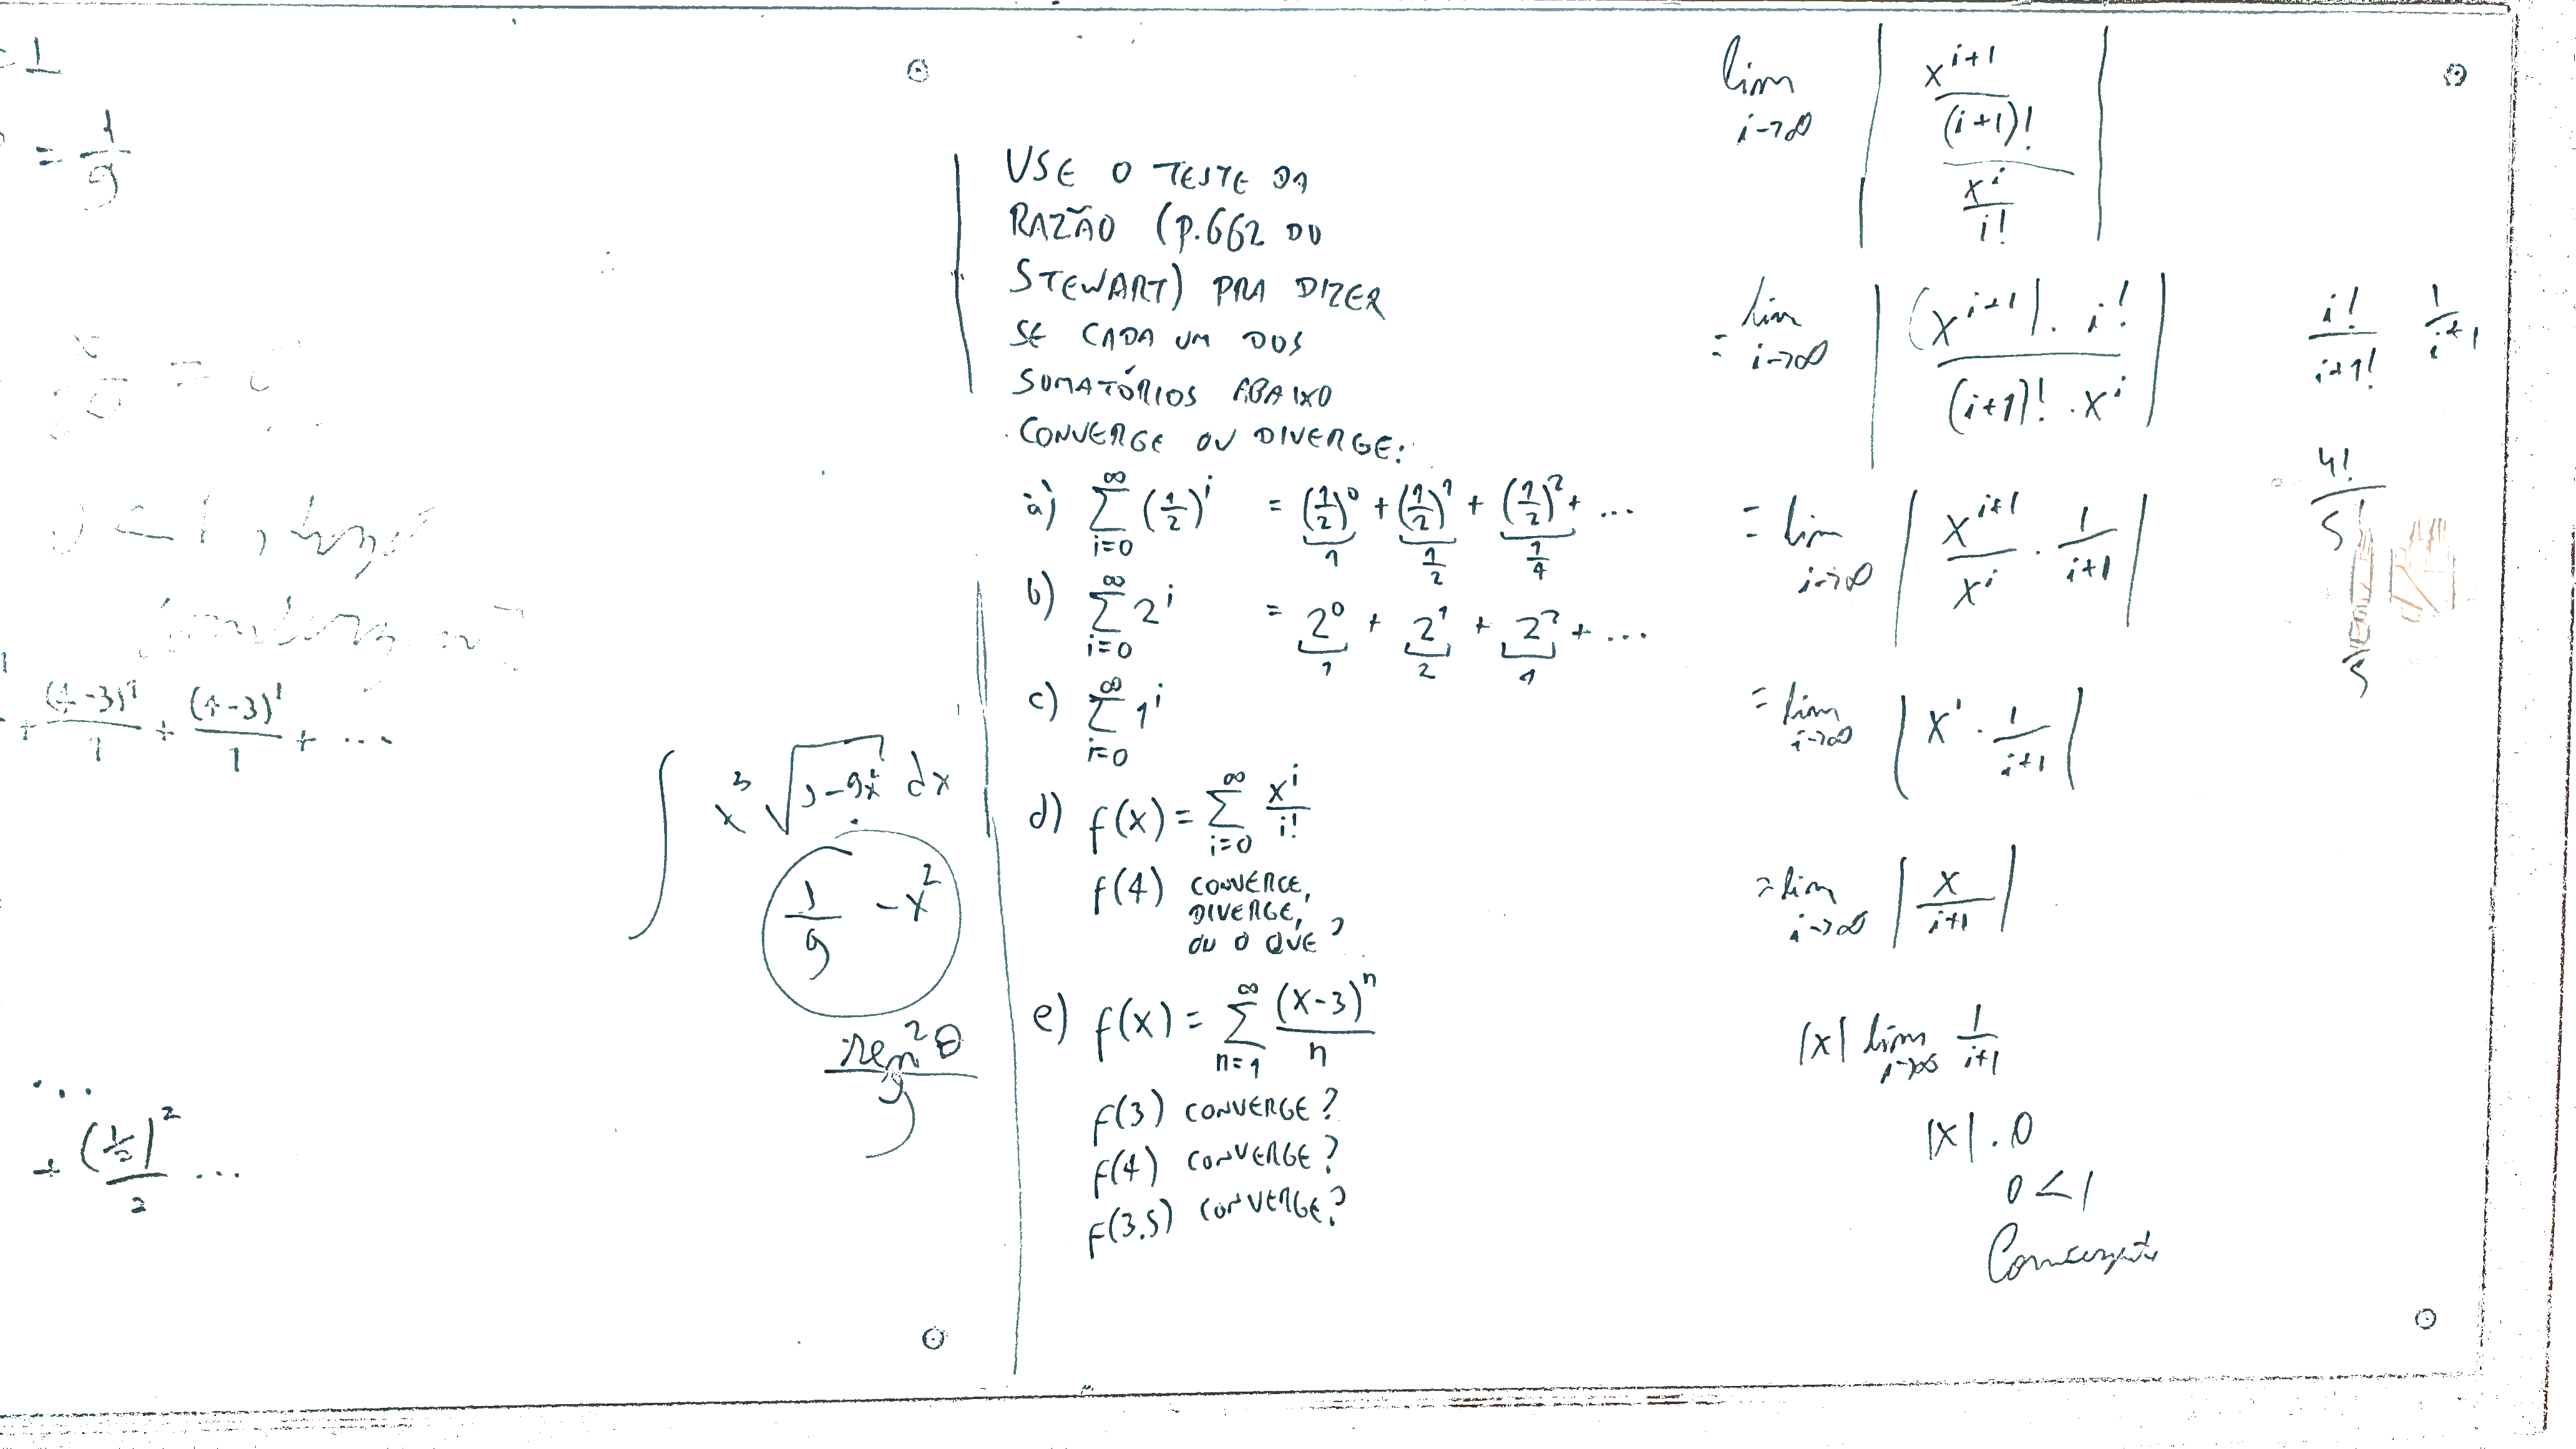 = 1
= 1/9
< 1,
+ (4-3)¹/1 + (4-3)¹/1 + ...
...
+ (1/2)²/2 ...
∫ x³ √(1-9x²) dx
1/9 - x²
sen²θ/9
USE O TESTE DA
RAZÃO (P.662 DO
STEWART) PRA DIZER
SE CADA UM DOS
SOMATÓRIOS ABAIXO
CONVERGE OU DIVERGE:
a) ∑_{i=0}^{∞} (1/2)^i = (1/2)⁰ + (1/2)¹ + (1/2)² + ...
1 1/2 1/4
b) ∑_{i=0}^{∞} 2^i = 2⁰ + 2¹ + 2² + ...
1 2 4
c) ∑_{i=0}^{∞} 1^i
d) f(x) = ∑_{i=0}^{∞} x^i/i!
f(4) CONVERGE,
DIVERGE,
OU O QUÊ?
e) f(x) = ∑_{n=1}^{∞} (x-3)^n/n
f(3) CONVERGE?
f(4) CONVERGE?
f(3.5) CONVERGE?
lim_{i→∞} | (x^{i+1}/(i+1)!) / (x^i/i!) |
= lim_{i→∞} | (x^{i+1}) . i! / ((i+1)! . x^i) |
i!/i+1! 1/i+1
= lim_{i→∞} | x^{i+1}/x^i . 1/i+1 |
4!/5!
5
= lim_{i→∞} | x¹ . 1/i+1 |
= lim_{i→∞} | x/i+1 |
|x| lim_{i→∞} 1/i+1
|x| . 0
0 < 1
Convergente